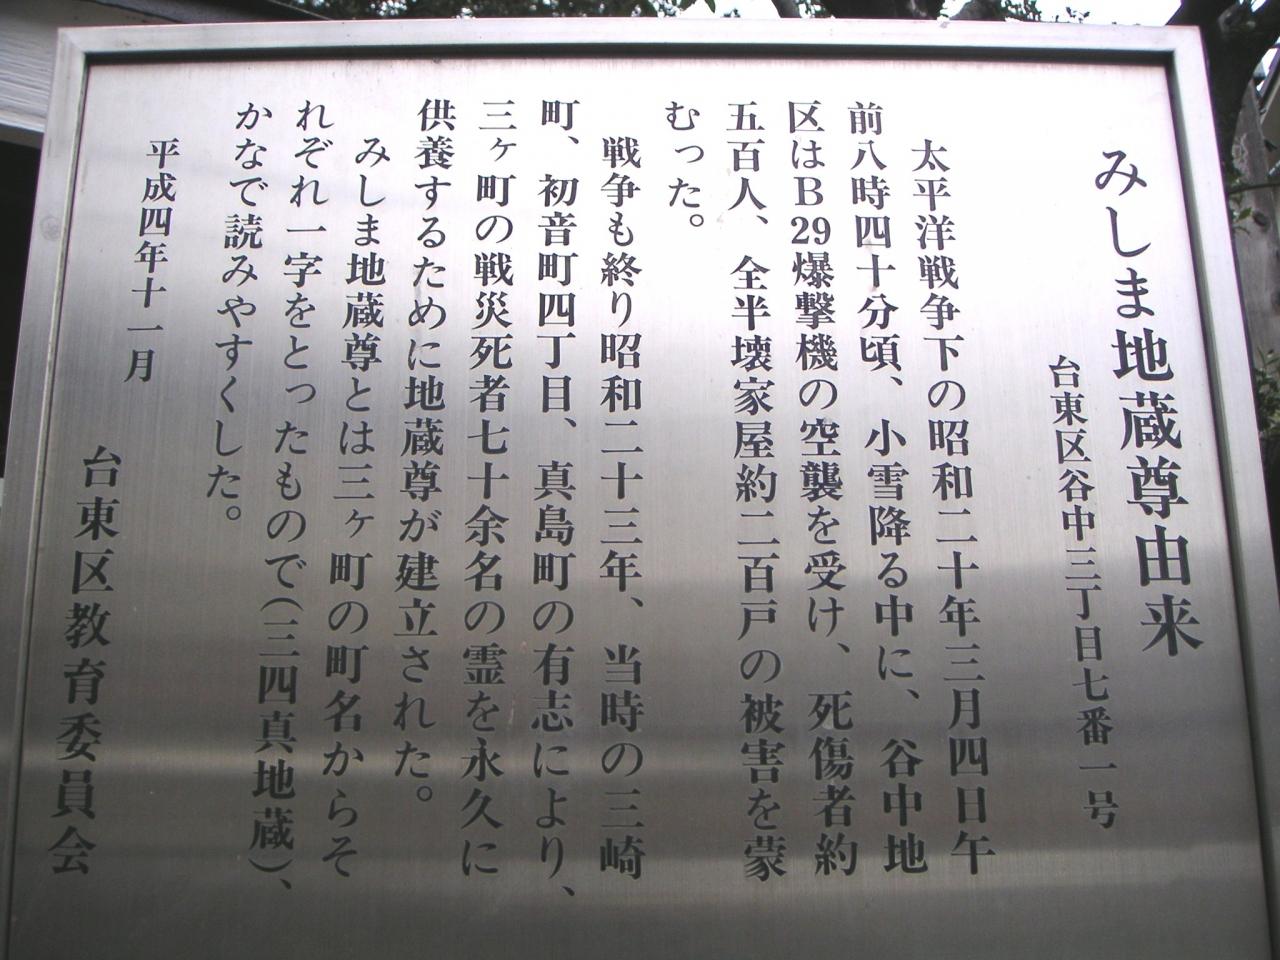 みしま地蔵尊由来
台東区谷中三丁目七番一号
太平洋戦争下の昭和二十年三月四日午
前八時四十分頃、小雪降る中に、谷中地
区はB29爆撃機の空襲を受け、死傷者約
五百人、全半壊家屋約二百戸の被害を蒙
むった。
戦争も終り昭和二十三年、当時の三崎
町、初音町四丁目、真島町の有志により、
三ヶ町の戦災死者七十余名の霊を永久に
供養するために地蔵尊が建立された。
みしま地蔵尊とは三ヶ町の町名からそ
れぞれ一字をとったもので(三四真地蔵)、
かなで読みやすくした。
平成四年十一月
台東区教育委員会